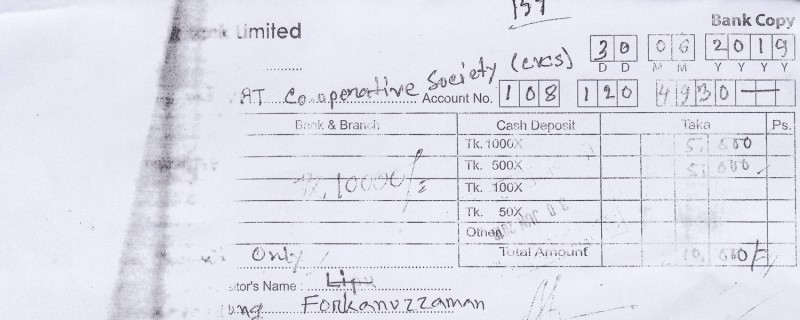 157
Limited
Bank Copy
30 06 2019
D D M M Y Y Y Y
AT Co-operative Society (CVCS) Account No. 108 120 4930
Bank & Branch Cash Deposit Taka Ps.
Tk. 1000X 5,000
Tk. 500X 5,000
Tk. 10000/= Tk. 100X
Tk. 50X
Other
Only Total Amount 10,000/=
sitor's Name : Lipu
Forkanuzzaman